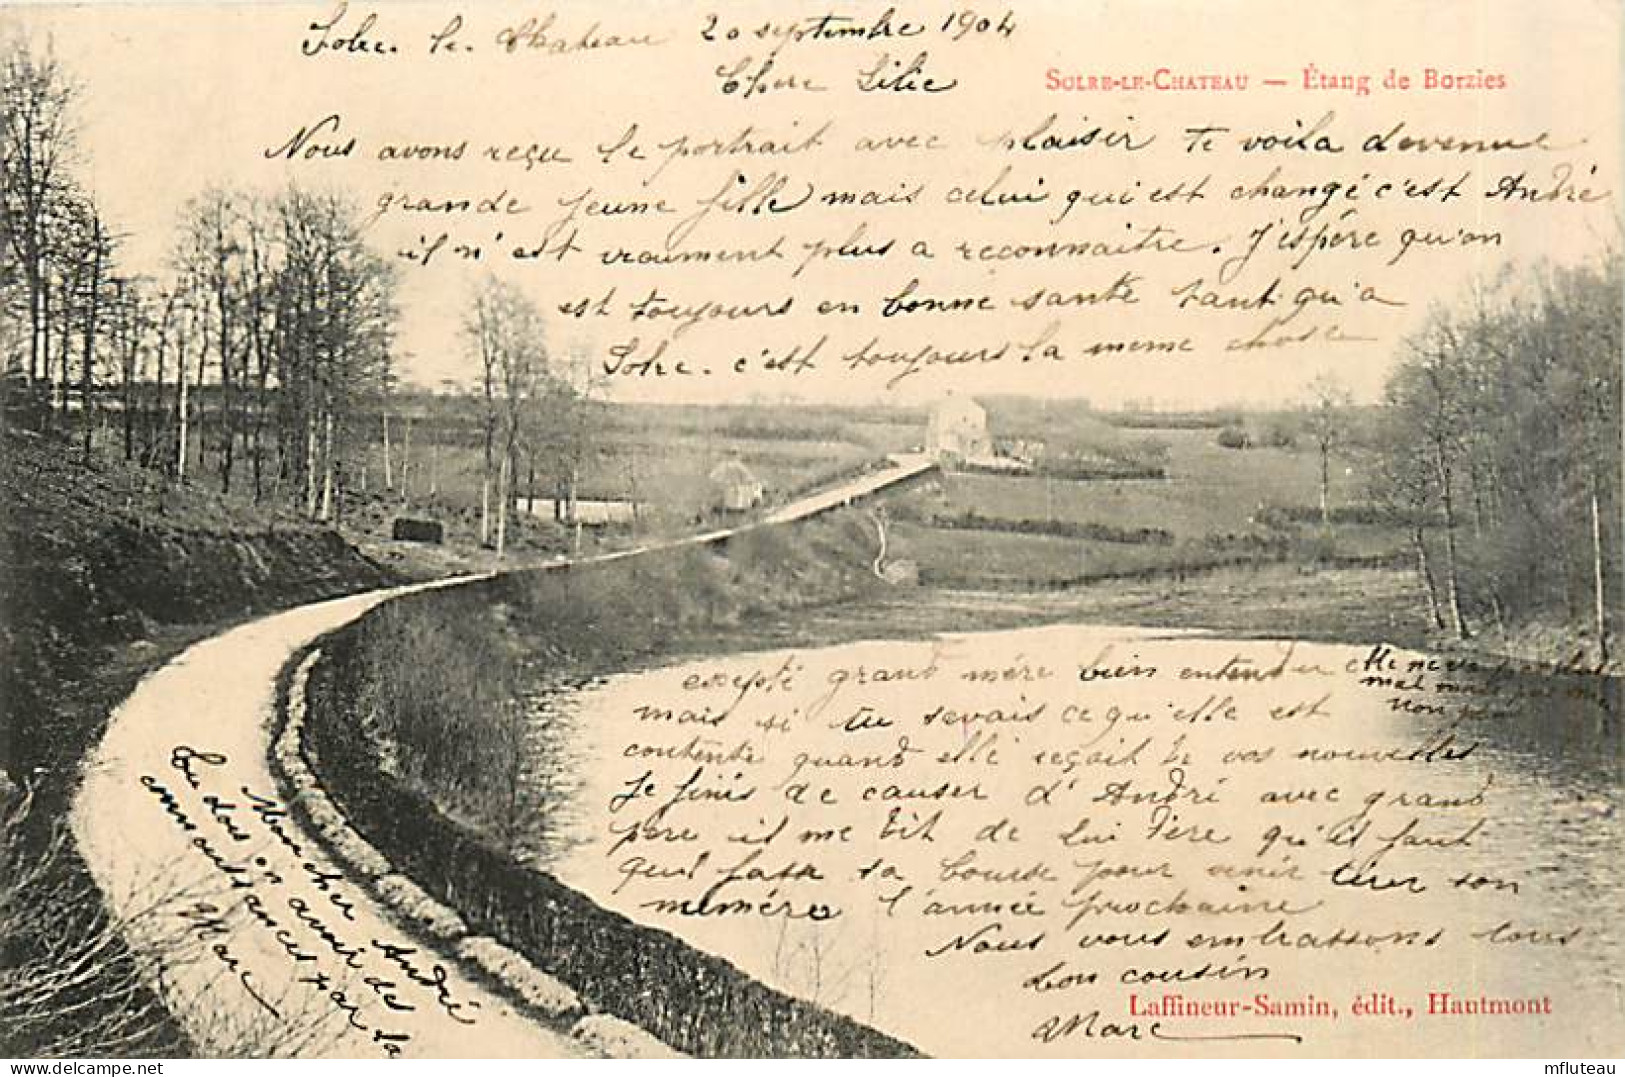 Solre. le. Chateau 20 septembre 1904
Chere Lilie
SOLRE-LE-CHATEAU — Étang de Borzies
Nous avons reçu le portrait avec plaisir te voila devenue
grande jeune fille mais celui qui est changé c'est André
il n'est vraiment plus a reconnaitre. J'espére qu'on
est toujours en bonne santé tant qu'a
Solre. c'est toujours la meme chose
exepté grand mére bien entendu
mais si tu savais ce qu'elle est
contente quand elle reçoit de vos nouvelles
Je finis de causer d'André avec grand
pere il me dit de lui dire qu'il faut
qu'il fasse sa bourse pour venir tirer son
l'année prochaine
Nous vous embrassons tous
ton cousin
Marc
Mon cher André
tu dois en avoir de
connaissances par la
Marc
Laffineur-Samin, édit., Hautmont
mfluteau